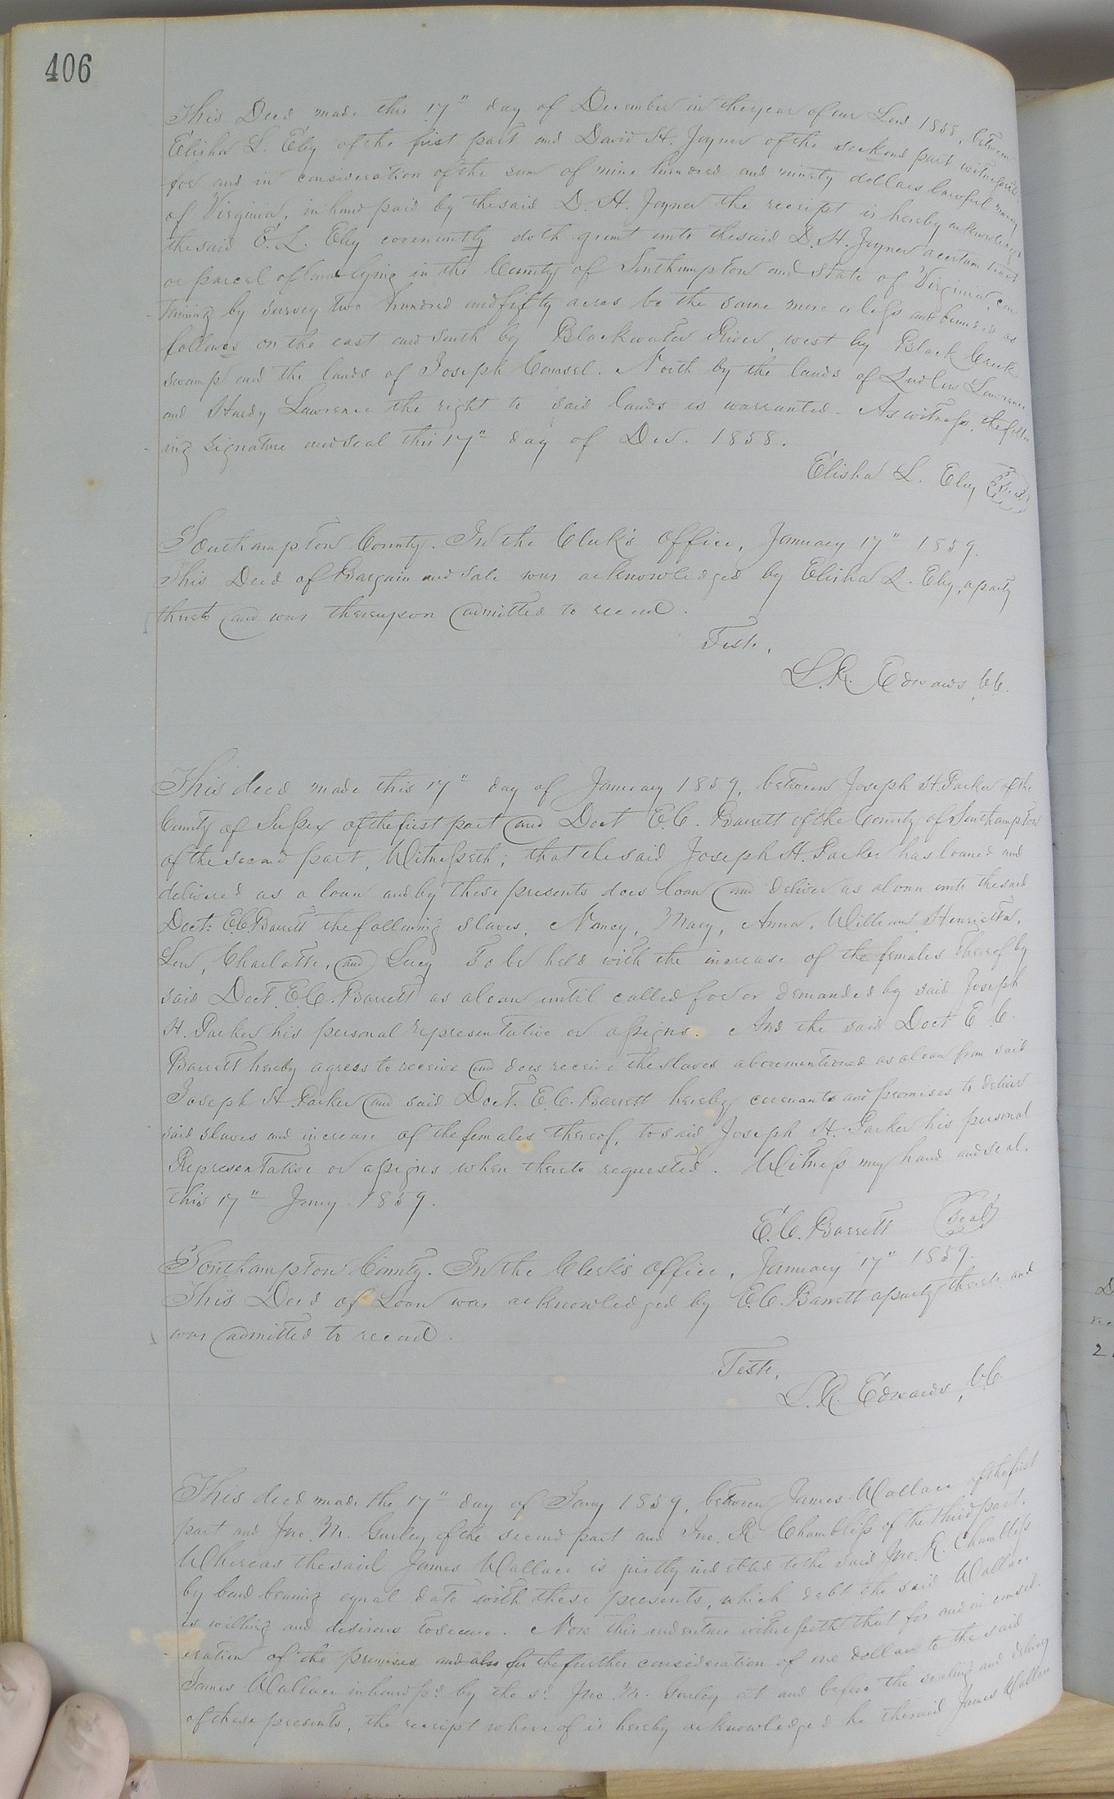 406
This Deed made this 17" day of December in the year of our Lord 1858, between
Elisha L. Eley of the first part and David H. Joyner of the seckond part witnesseth
for and in consideration of the sum of nine hundred and ninety dollars lawful money
of Virginia, in hand paid by the said D. H. Joyner the receipt is hereby acknowledged
the said E. L. Eley covenantly doth grant unto the said D. H. Joyner a certain tract
or parcel of land lying in the County of Southampton and State of Virginia, con
taining by survey two hundred and fifty acres be the same more or less and bounded as
follows on the east and South by Blackwater River, west by Black Creek
swamp and the lands of Joseph Counsel. North by the lands of Lawrence
and Hardy Lawrence the right to said lands is warranted. As witness, the follow
ing signature and seal this 17" day of Dec. 1858.
Elisha L. Eley Seal
Southampton County. In the Clerk's Office, January 17" 1859.
This Deed of Bargain and Sale was acknowledged by Elisha L. Eley, a party
thereto and was thereupon admitted to record.
Teste,
L. R. Edwards, C.C.
This deed made this 17" day of January 1859, between Joseph H. Parker of the
County of Sussex of the first part and Doct E. C. Barrett of the County of Southampton
of the second part, Witnesseth; that the said Joseph H. Parker has loaned and
delivered as a loan and by these presents does loan and deliver as a loan unto the said
Doct: E C Barrett the following slaves, Nancy, Mary, Anna, William, Henrietta,
Lew, Charlotte, and Lucy To be held with the increase of the females thereof by
said Doct. E. C. Barrett as a loan until called for or demanded by said Joseph
H. Parker his personal representative or assigns. And the said Doct E. C.
Barrett hereby agrees to receive and does receive the slaves abovementioned as a loan from said
Joseph H. Parker and said Doct. E. C. Barrett hereby covenants and promises to deliver
said slaves and increase of the females thereof, to said Joseph H. Parker his personal
Representative or assigns when thereto requested. Witness my hand and seal,
this 17" Jany 1859.
E. C. Barrett Seal
Southampton County. In the Clerk's Office, January 17" 1859.
This Deed of Loan was acknowledged by E. C. Barrett a party thereto and
was admitted to record.
Teste,
L. R. Edwards, C.C.
This deed made the 17" day of Jany 1859, between James Wallace of the first
part and Jno. M. Gurley of the second part and Jno. R. Chambliss of the third part.
Whereas the said James Wallace is justly indebted to the said Jno. R. Chambliss
by bond bearing equal date with these presents, which debt the said Wallace
is willing and desirous to secure. Now this indenture witnesseth that for and in consid-
eration of the premises and also for the further consideration of one dollar to the said
James Wallace in hand pd. by the sd. Jno. M. Gurley at and before the sealing and delivery
of these presents, the receipt whereof is hereby acknowledged he the said James Wallace